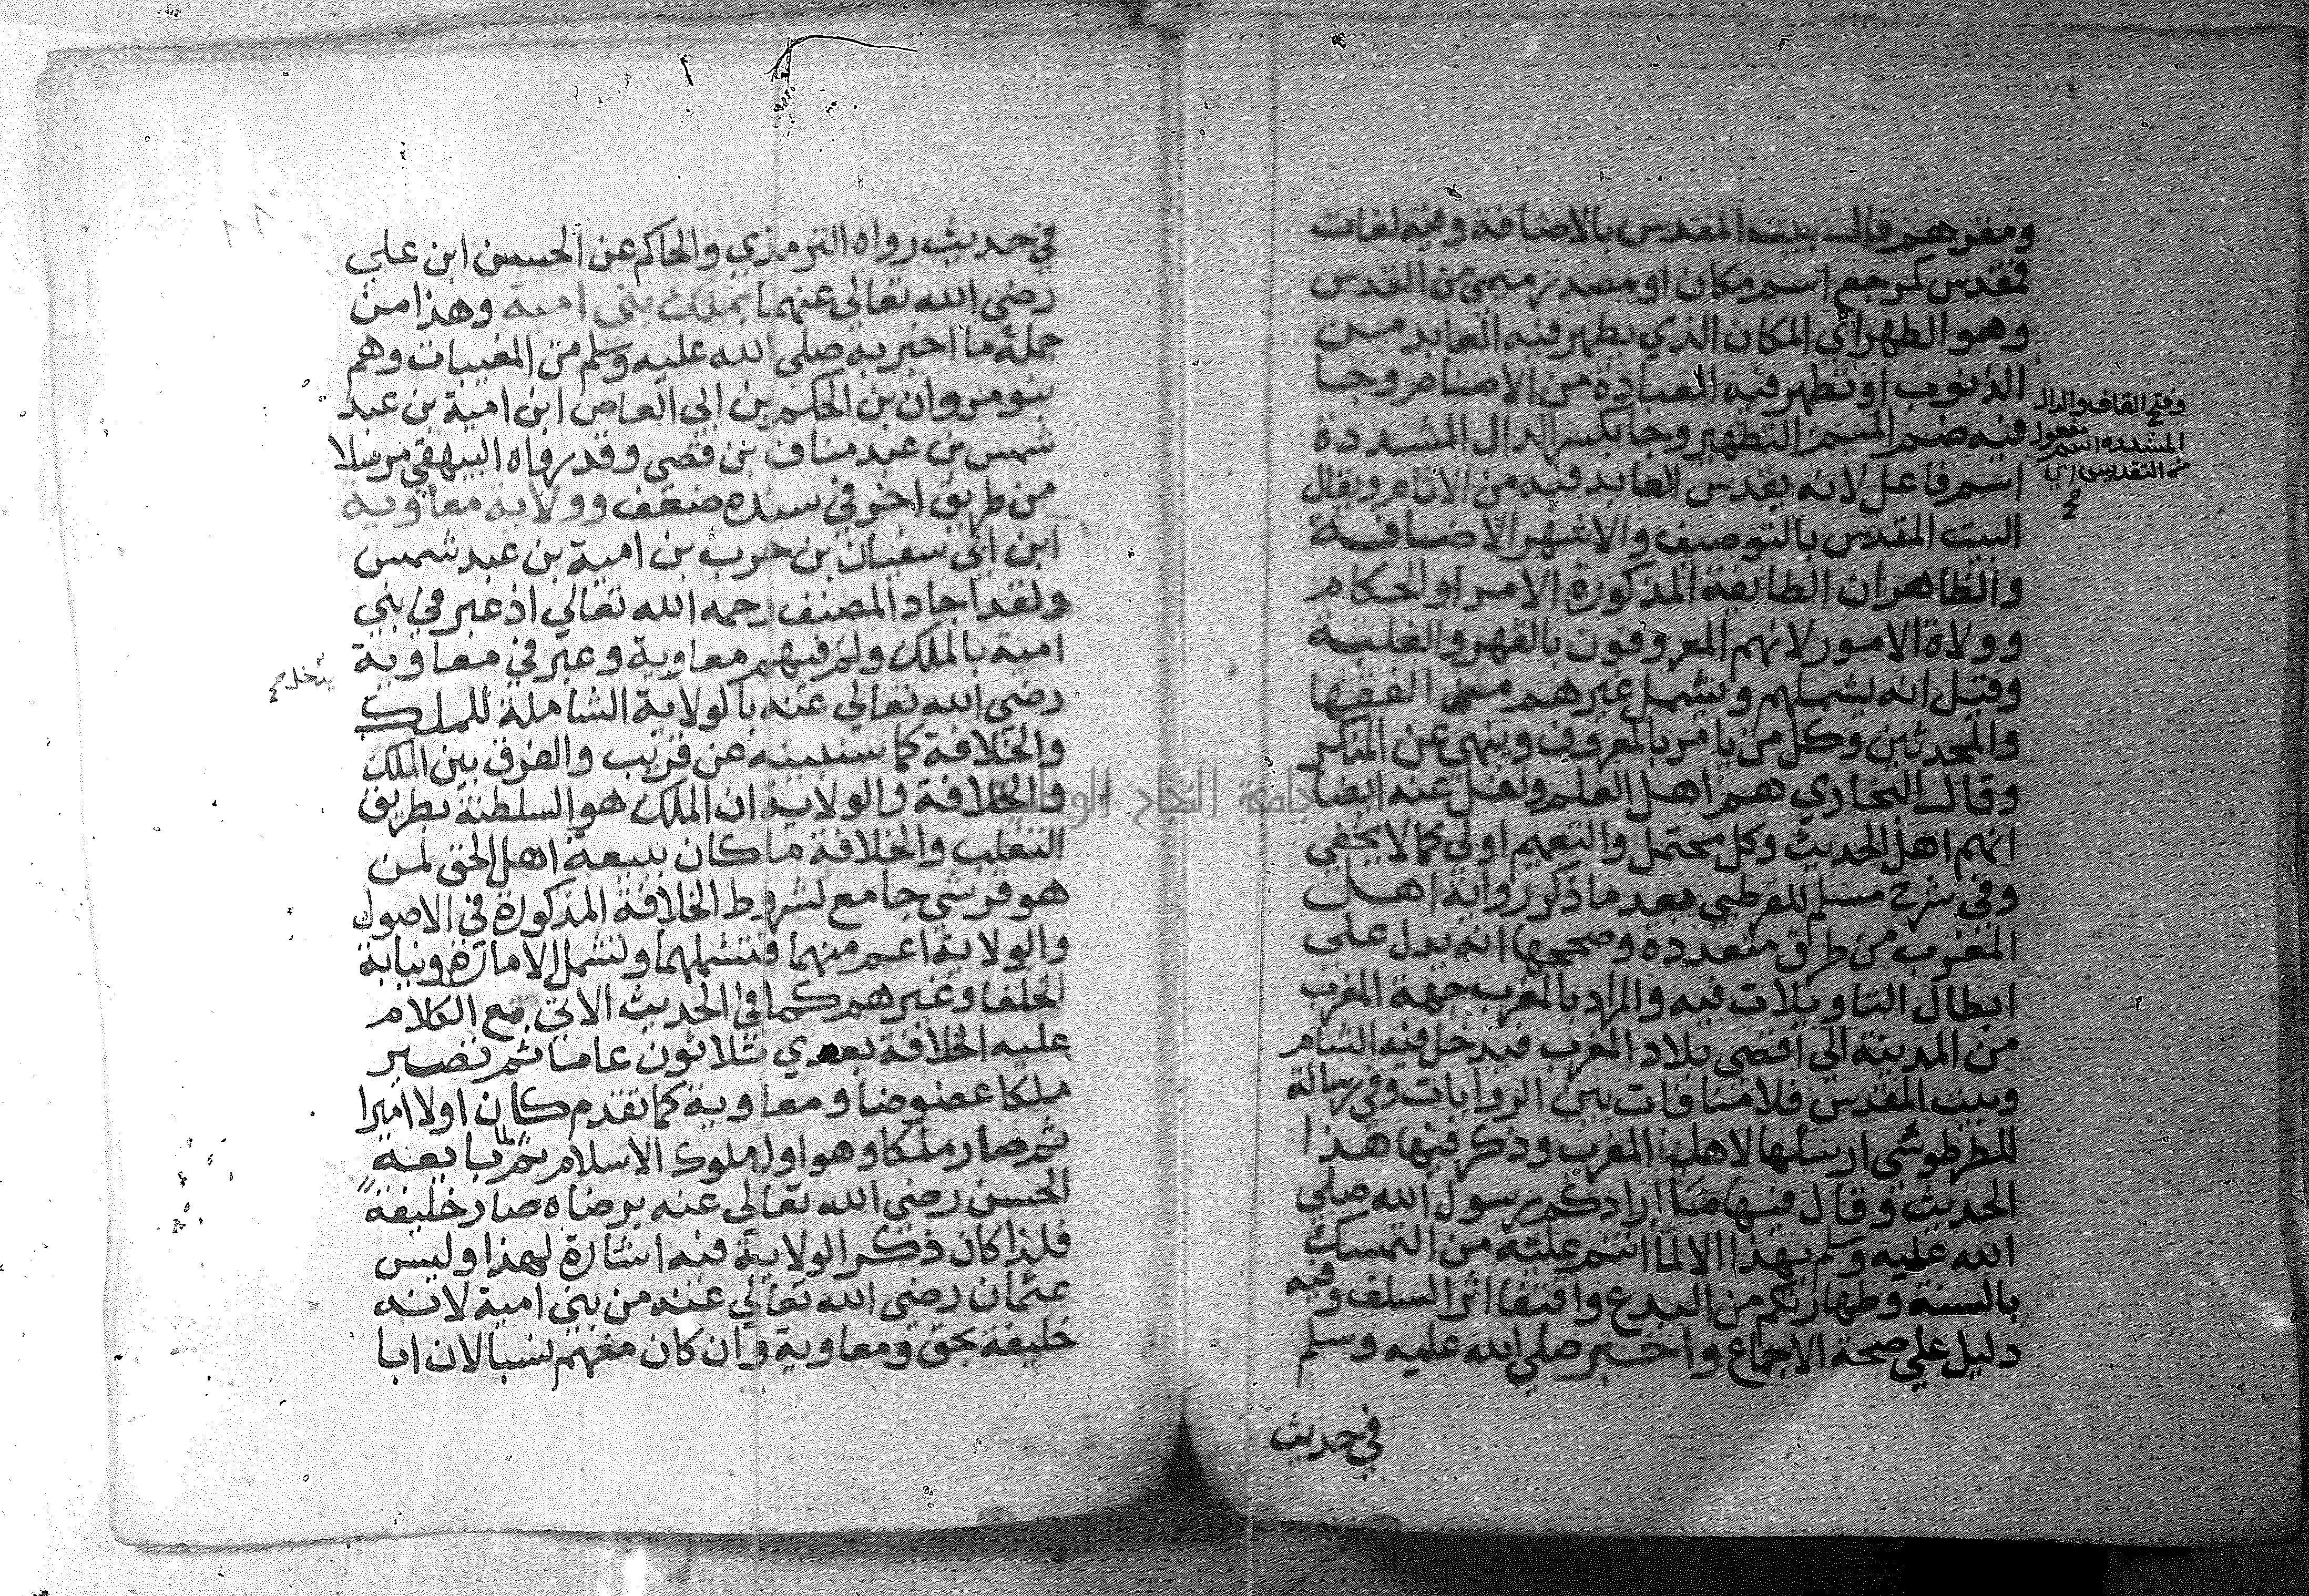 ومقرهم قال بيت المقدس بالاضافة وفيه لغات
فمقدس كمرجع اسم مكان او مصدر ميمي من القدس
وهو الطهر اي المكان الذي يطهر فيه العابد من
الذنوب او تطهر فيه العبادة من الاصنام وجا
فيه ضم الميم التطهير وجا بكسر الدال المشددة
وفتح القاف والدال
المشددة اسم مفعول
من التقديس اي
صح
اسم فاعل لانه يقدس العابد فيه من الاثام ويقال
البيت المقدس بالتوصيف والاشهر الاضافة
والظاهر ان الطايفة المذكورة الامرا والحكام
وولاة الامور لانهم المعروفون بالقهر والغلبة
وقيل انه يشملهم ويشمل غيرهم من الفقها
والمحدثين وكل من يامر بالمعروف وينهى عن المنكر
وقال البخاري هم اهل العلم ونقل عنه ايضا
انهم اهل الحديث وكل محتمل والتعميم اولي كما لا يخفي
وفي شرح مسلم للقرطبي بعد ما ذكر رواية اهل
المغرب من طرق متعددة وصححها انه يدل على
ابطال التاويلات فيه والمراد بالمغرب جهة المغرب
من المدينة الي اقصى بلاد المغرب فيدخل فيه الشام
وبيت المقدس فلا منافات بين الروايات وفي رسالة
للطرطوشي ارسلها لاهل المغرب وذكر فيها هذا
الحديث وقال فيها ما ارادكم رسول الله صلي
الله عليه وسلم بهذا الا لما انتم عليه من التمسك
بالسنة وطهارتكم من البدع واقتفا اثر السلف وفيه
دليل علي صحة الاجماع واخبر صلي الله عليه وسلم
في حديث
في حديث رواه الترمذي والحاكم عن الحسين ابن علي
رضي الله تعالي عنهما بملك بني امية وهذا من
جملة ما اخبر به صلي الله عليه وسلم من المغيبات وهم
بنو مروان بن الحكم بن ابي العاص ابن امية بن عبد
شمس بن عبد مناف بن قصي وقد رواه البيهقي مرسلا
من طريق اخر في سنده ضعف وولاية معاوية
ابن ابي سفيان بن حرب بن امية بن عبد شمس
ولقد اجاد المصنف رحمه الله تعالي اذ عبر في بني
امية بالملك ولم فيهم معاوية وعبر في معاوية
يدخل صح
رضي الله تعالي عنه بالولاية الشاملة للملك
والخلافة كما سنبينه عن قريب والفرق بين الملك
والخلافة والولاية ان الملك هو السلطنة بطريق
التغلب والخلافة ما كان ببيعة اهل الحق لمن
هو قرشي جامع لشروط الخلافة المذكورة في الاصول
والولاية اعم منهما فتشملهما ولتشمل الامارة ونيابة
الخلفا وغيرهم كما في الحديث الاتي مع الكلام
عليه الخلافة بعدي ثلاثون عاما ثم تصير
ملكا عضوضا ومعاوية كما تقدم كان اولا اميرا
ثم صار ملكا وهو اول ملوك الاسلام ثم لما بايعه
الحسن رضي الله تعالي عنه برضاه صار خليفة
فلذا كان ذكر الولاية فيه اشارة لهذا وليس
عثمان رضي الله تعالي عنه من بني امية لانه
خليفة بحق ومعاوية وان كان منهم نسبا لان ابا
جامعة النجاح الوطنية